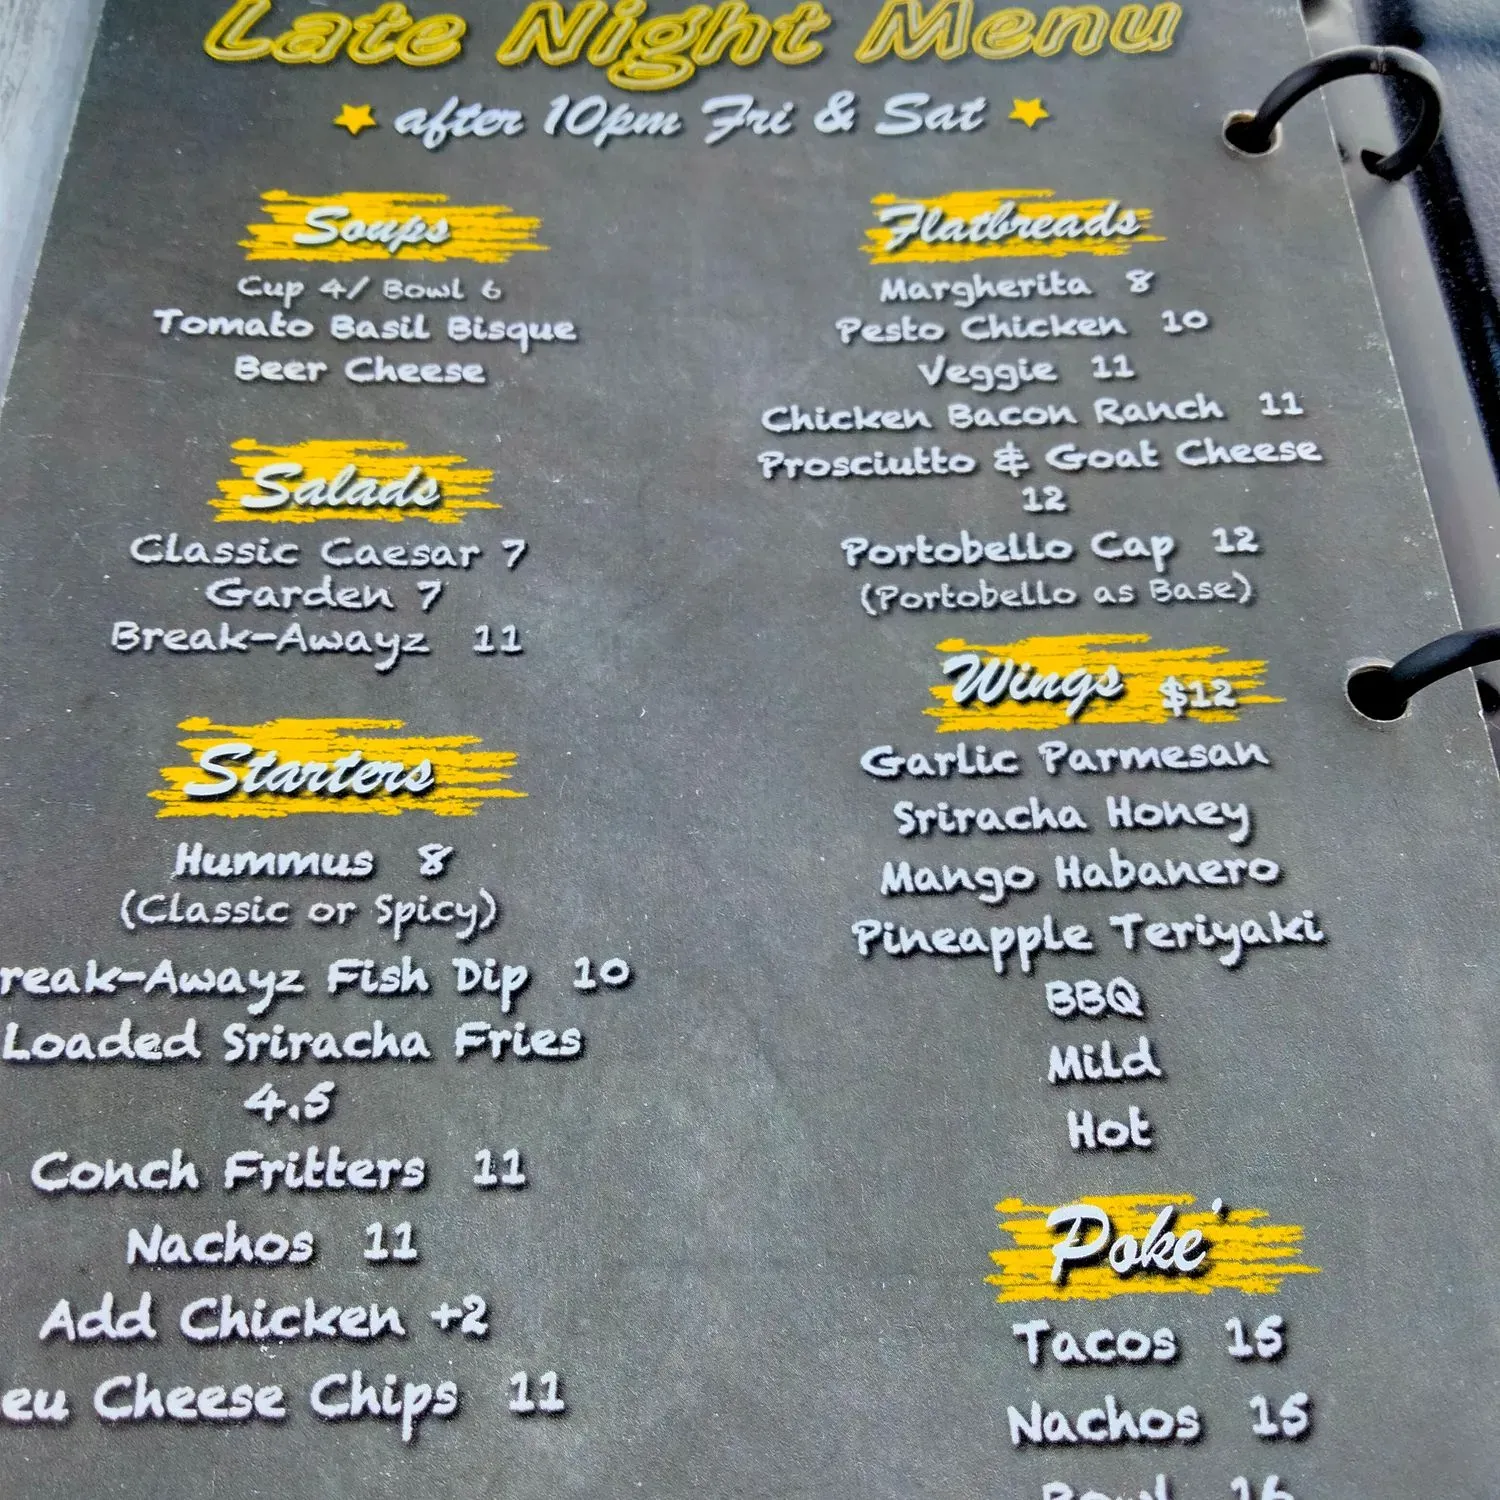 Late Night Menu
after 10pm Fri & Sat
Soups
Cup 4/ Bowl 6
Tomato Basil Bisque
Beer Cheese
Salads
Classic Caesar 7
Garden 7
Break-Awayz 11
Starters
Hummus 8
(Classic or Spicy)
reak-Awayz Fish Dip 10
Loaded Sriracha Fries
4.5
Conch Fritters 11
Nachos 11
Add Chicken +2
eu Cheese Chips 11
Flatbreads
Margherita 8
Pesto Chicken 10
Veggie 11
Chicken Bacon Ranch 11
Prosciutto & Goat Cheese
12
Portobello Cap 12
(Portobello as Base)
Wings $12
Garlic Parmesan
Sriracha Honey
Mango Habanero
Pineapple Teriyaki
BBQ
Mild
Hot
Poke'
Tacos 15
Nachos 15
Bowl 16